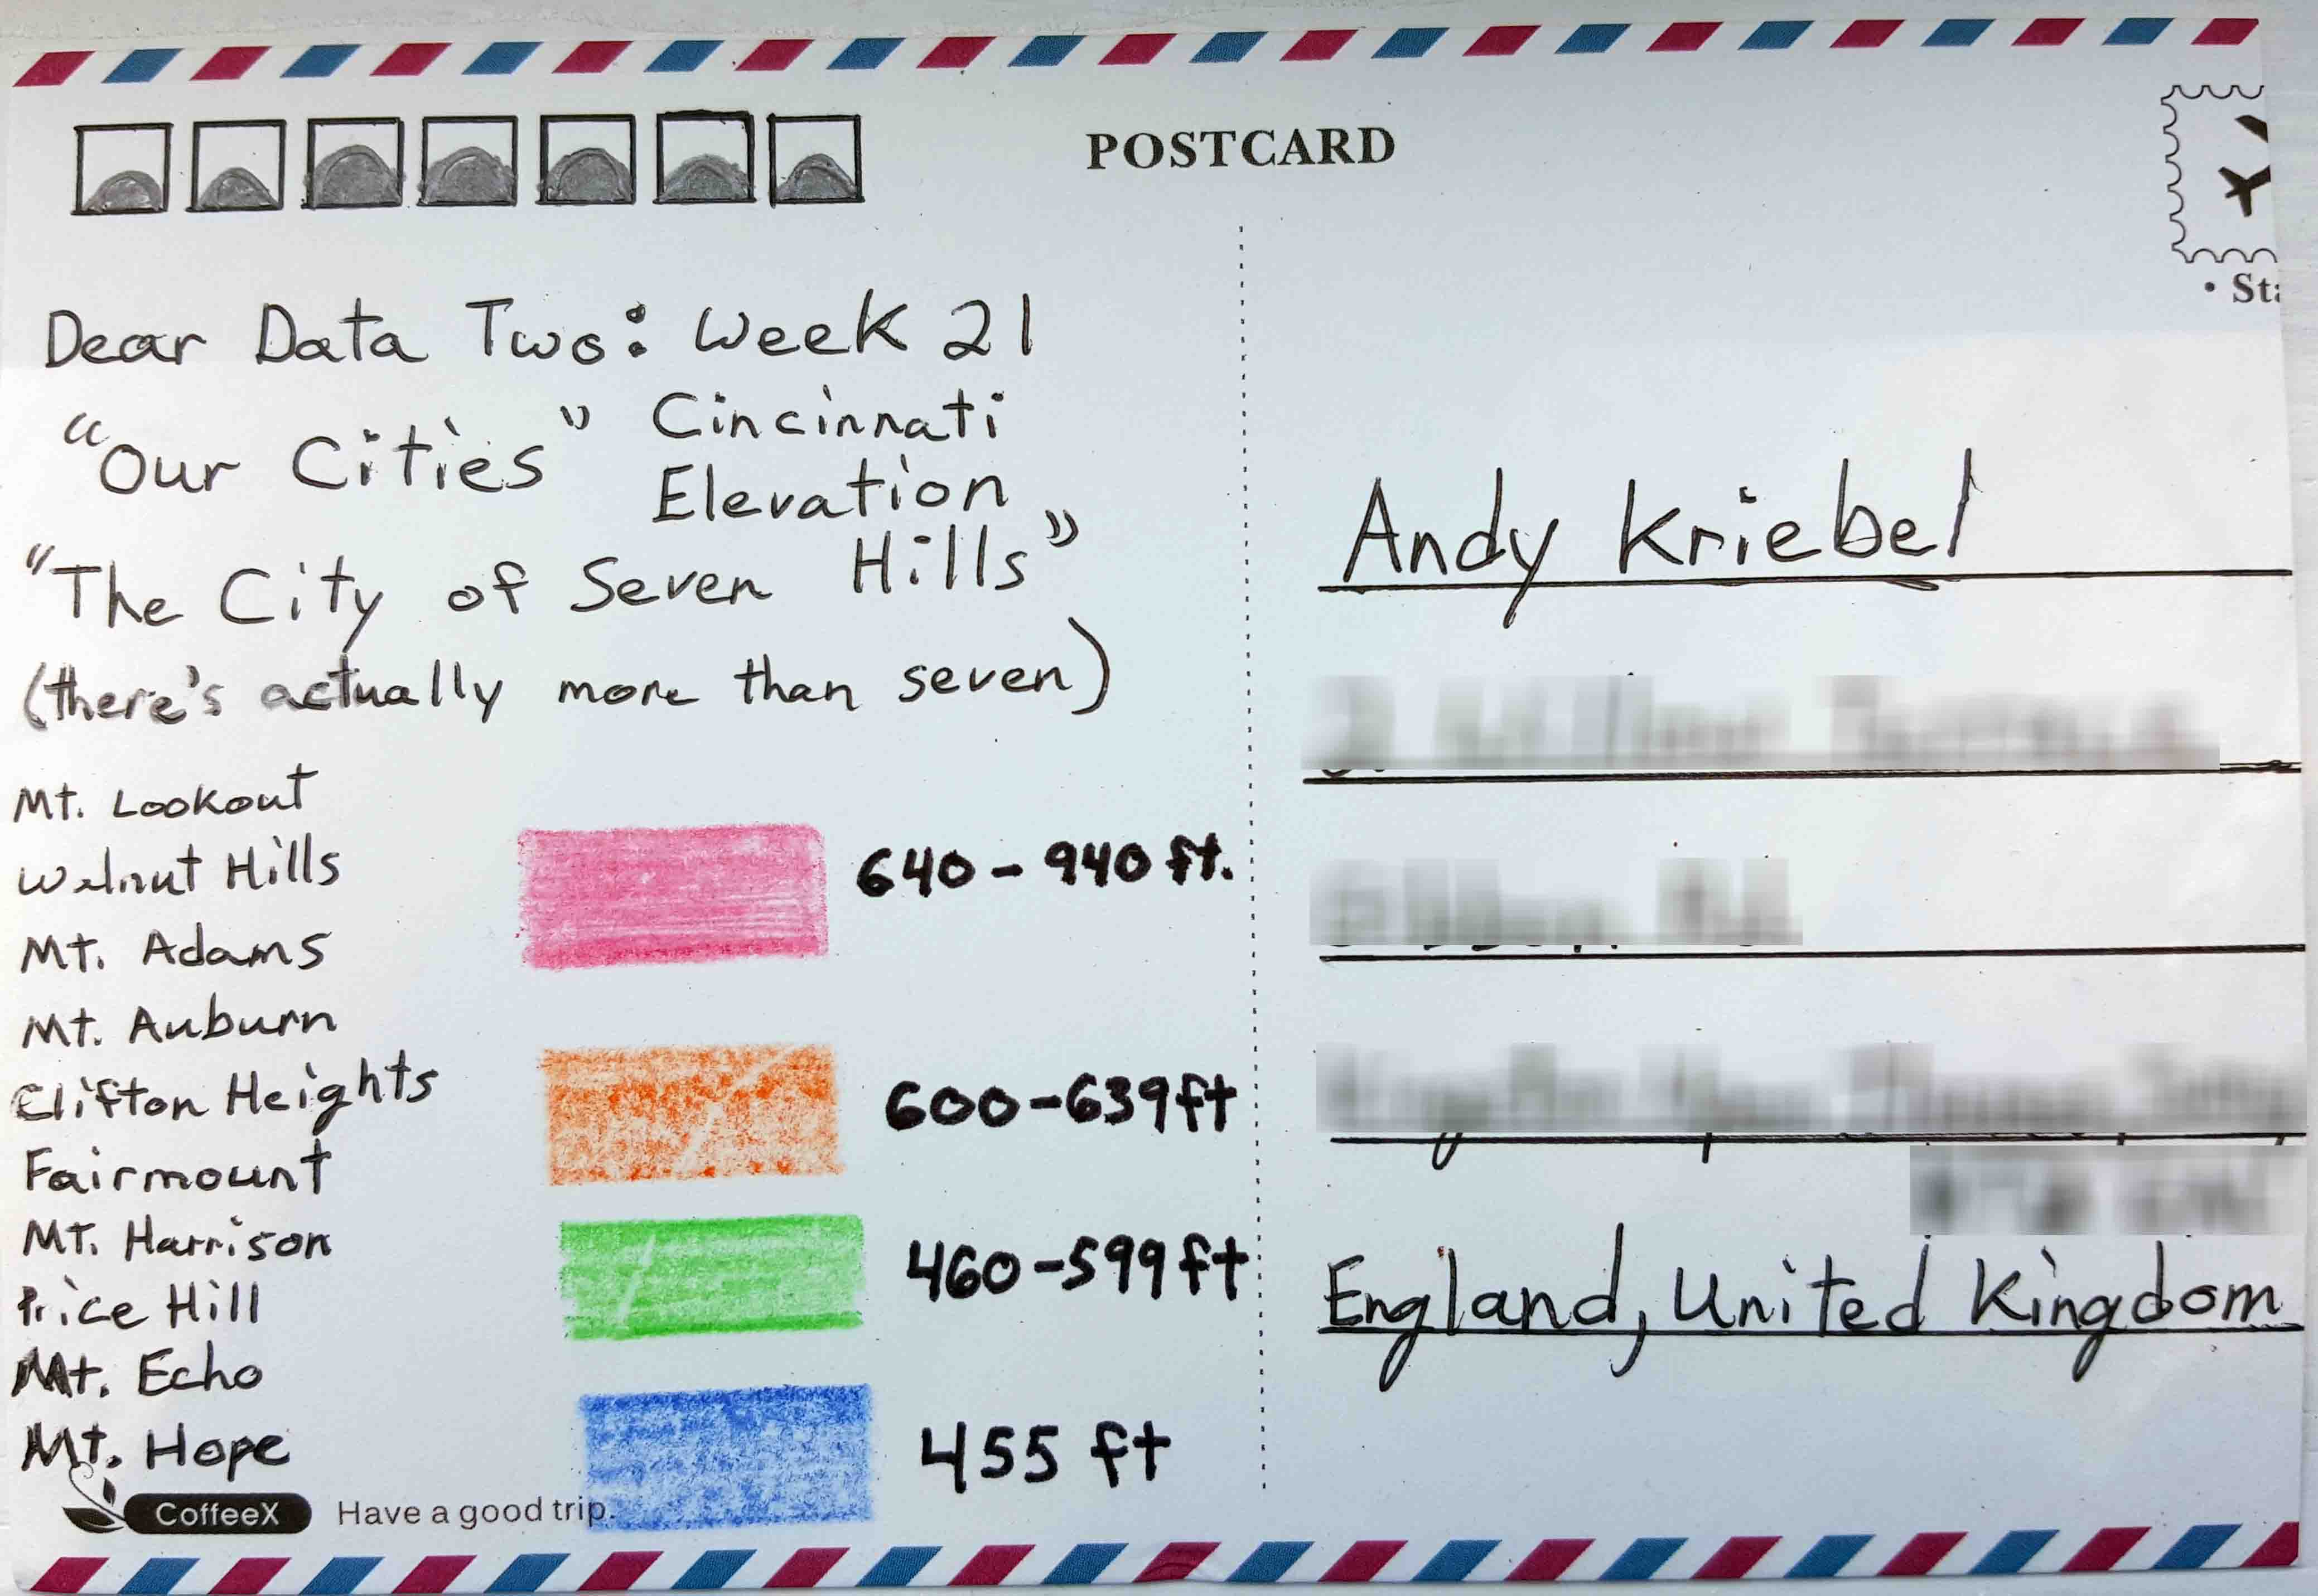 POSTCARD
• Sta
Dear Data Two: Week 21
"Our Cities" Cincinnati
Elevation
"The City of Seven Hills"
(there's actually more than seven)
Mt. Lookout
Walnut Hills
Mt. Adams
Mt. Auburn
Clifton Heights
Fairmount
Mt. Harrison
Price Hill
Mt. Echo
Mt. Hope
640 - 940 ft.
600-639ft
460-599ft
455 ft
CoffeeX Have a good trip.
Andy Kriebel
England, United Kingdom